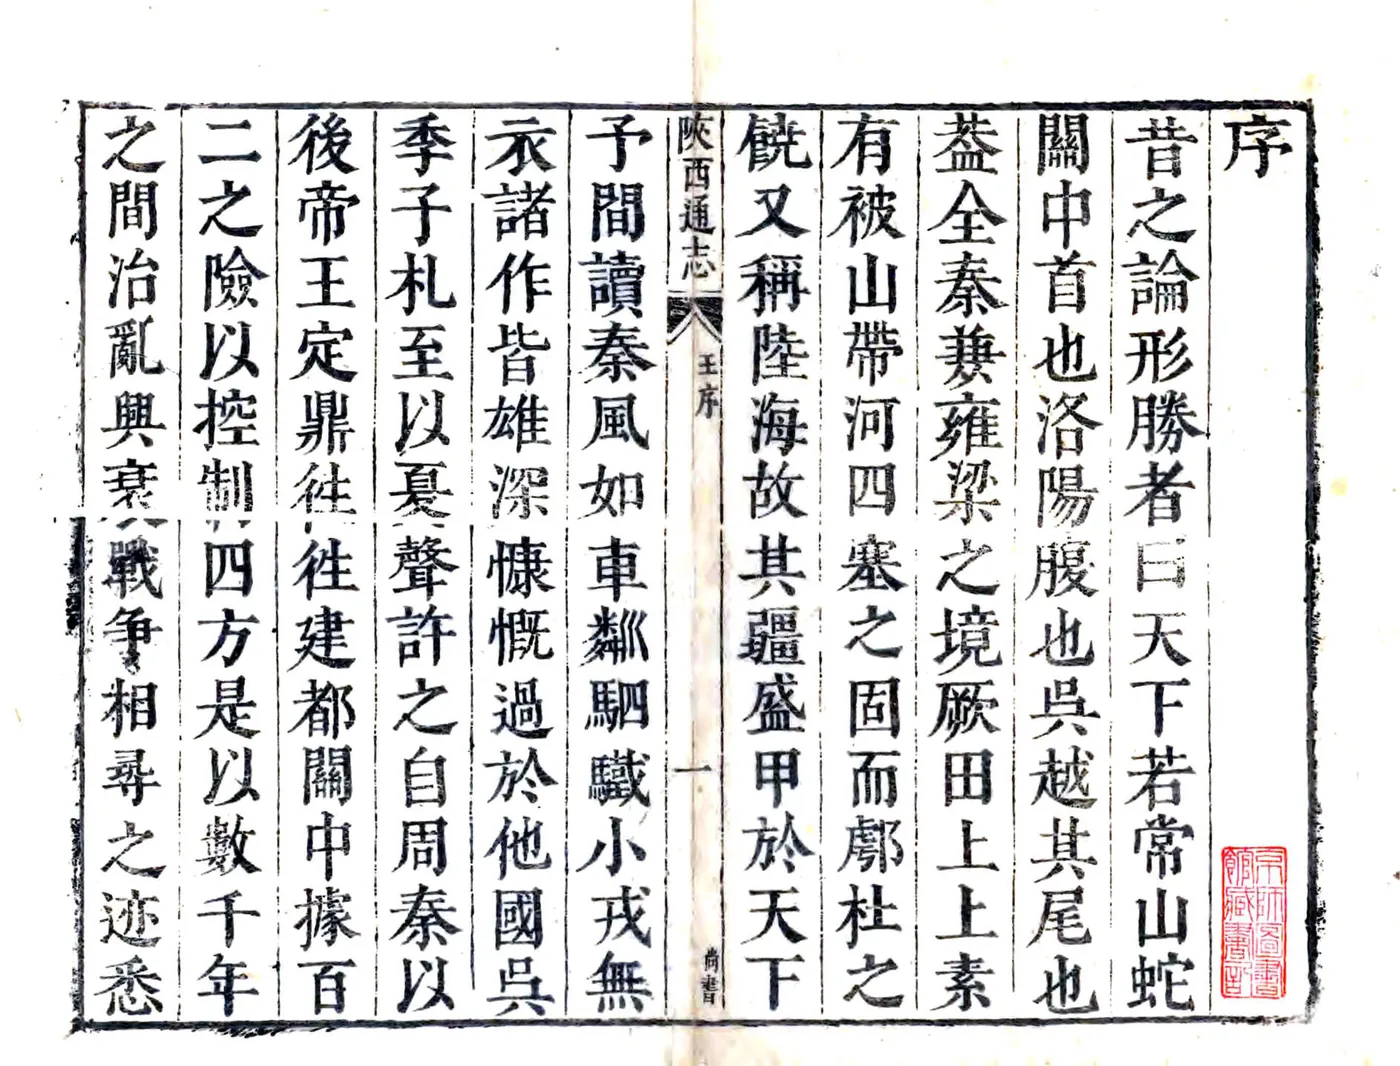 序
昔之論形勝者曰天下若常山蛇
關中首也洛陽腹也吳越其尾也
葢全秦兼雍梁之境厥田上上素
有被山帶河四塞之固而鄠杜之
饒又稱陸海故其疆盛甲於天下
陝西通志
王序
一
尚書
予間讀秦風如車粼駟驖小戎無
衣諸作皆雄深慷慨過於他國吳
季子札至以夏聲許之自周秦以
後帝王定鼎徃徃建都關中據百
二之險以控制四方是以數千年
之間治亂興衰戰争相尋之迹悉
京師圖書
館藏書記